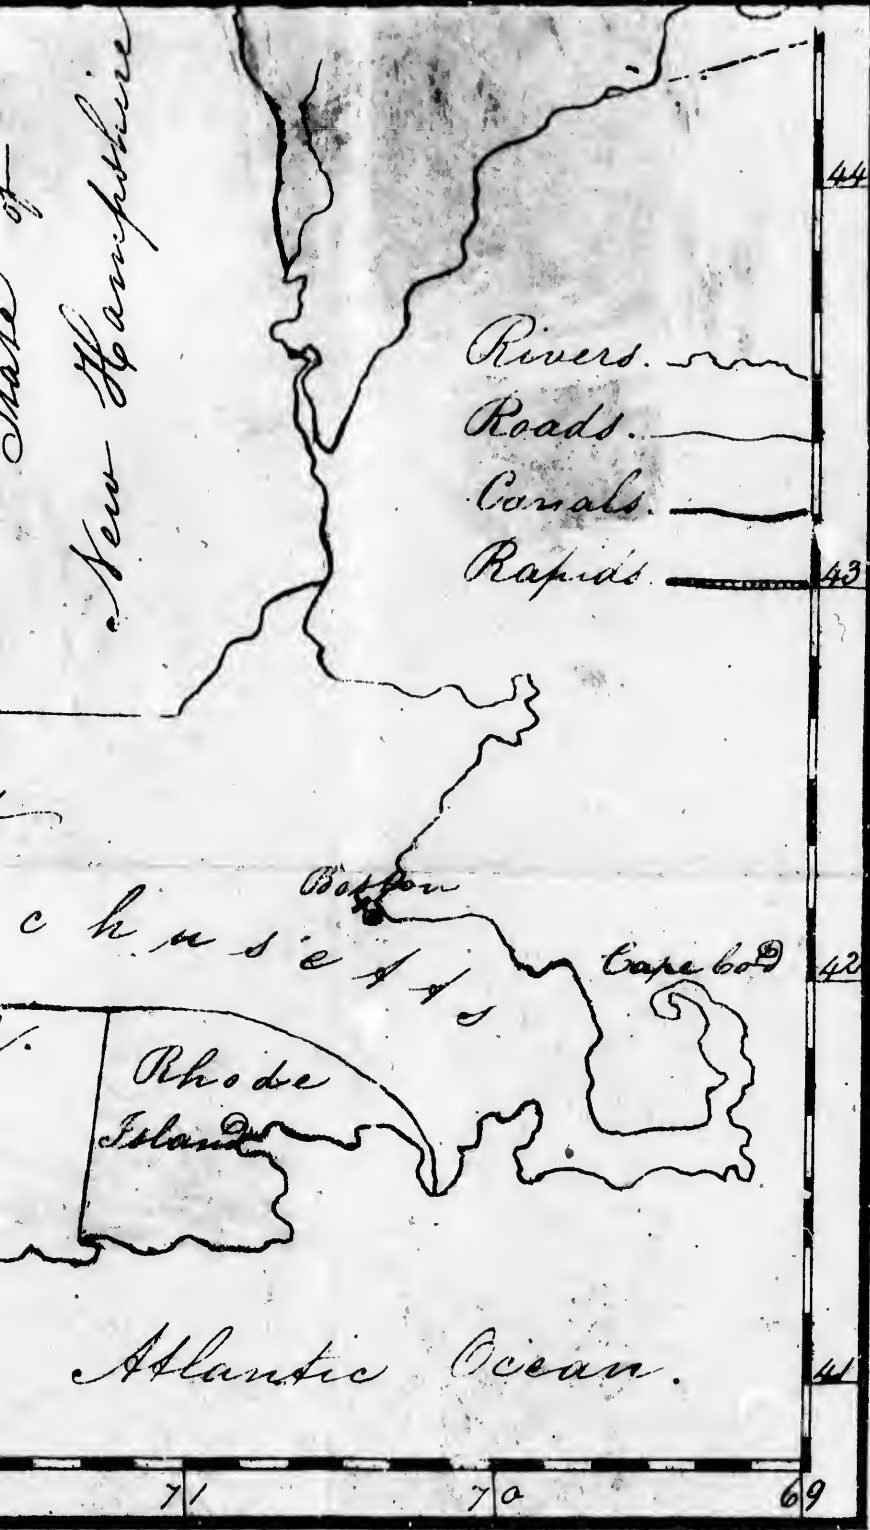 State of
New Hampshire
44
Rivers.
Roads.
Canals.
Rapids.
43
Boston
chusetts
Cape Cod
42
Rhode
Island
Atlantic Ocean.
41
71
70
69